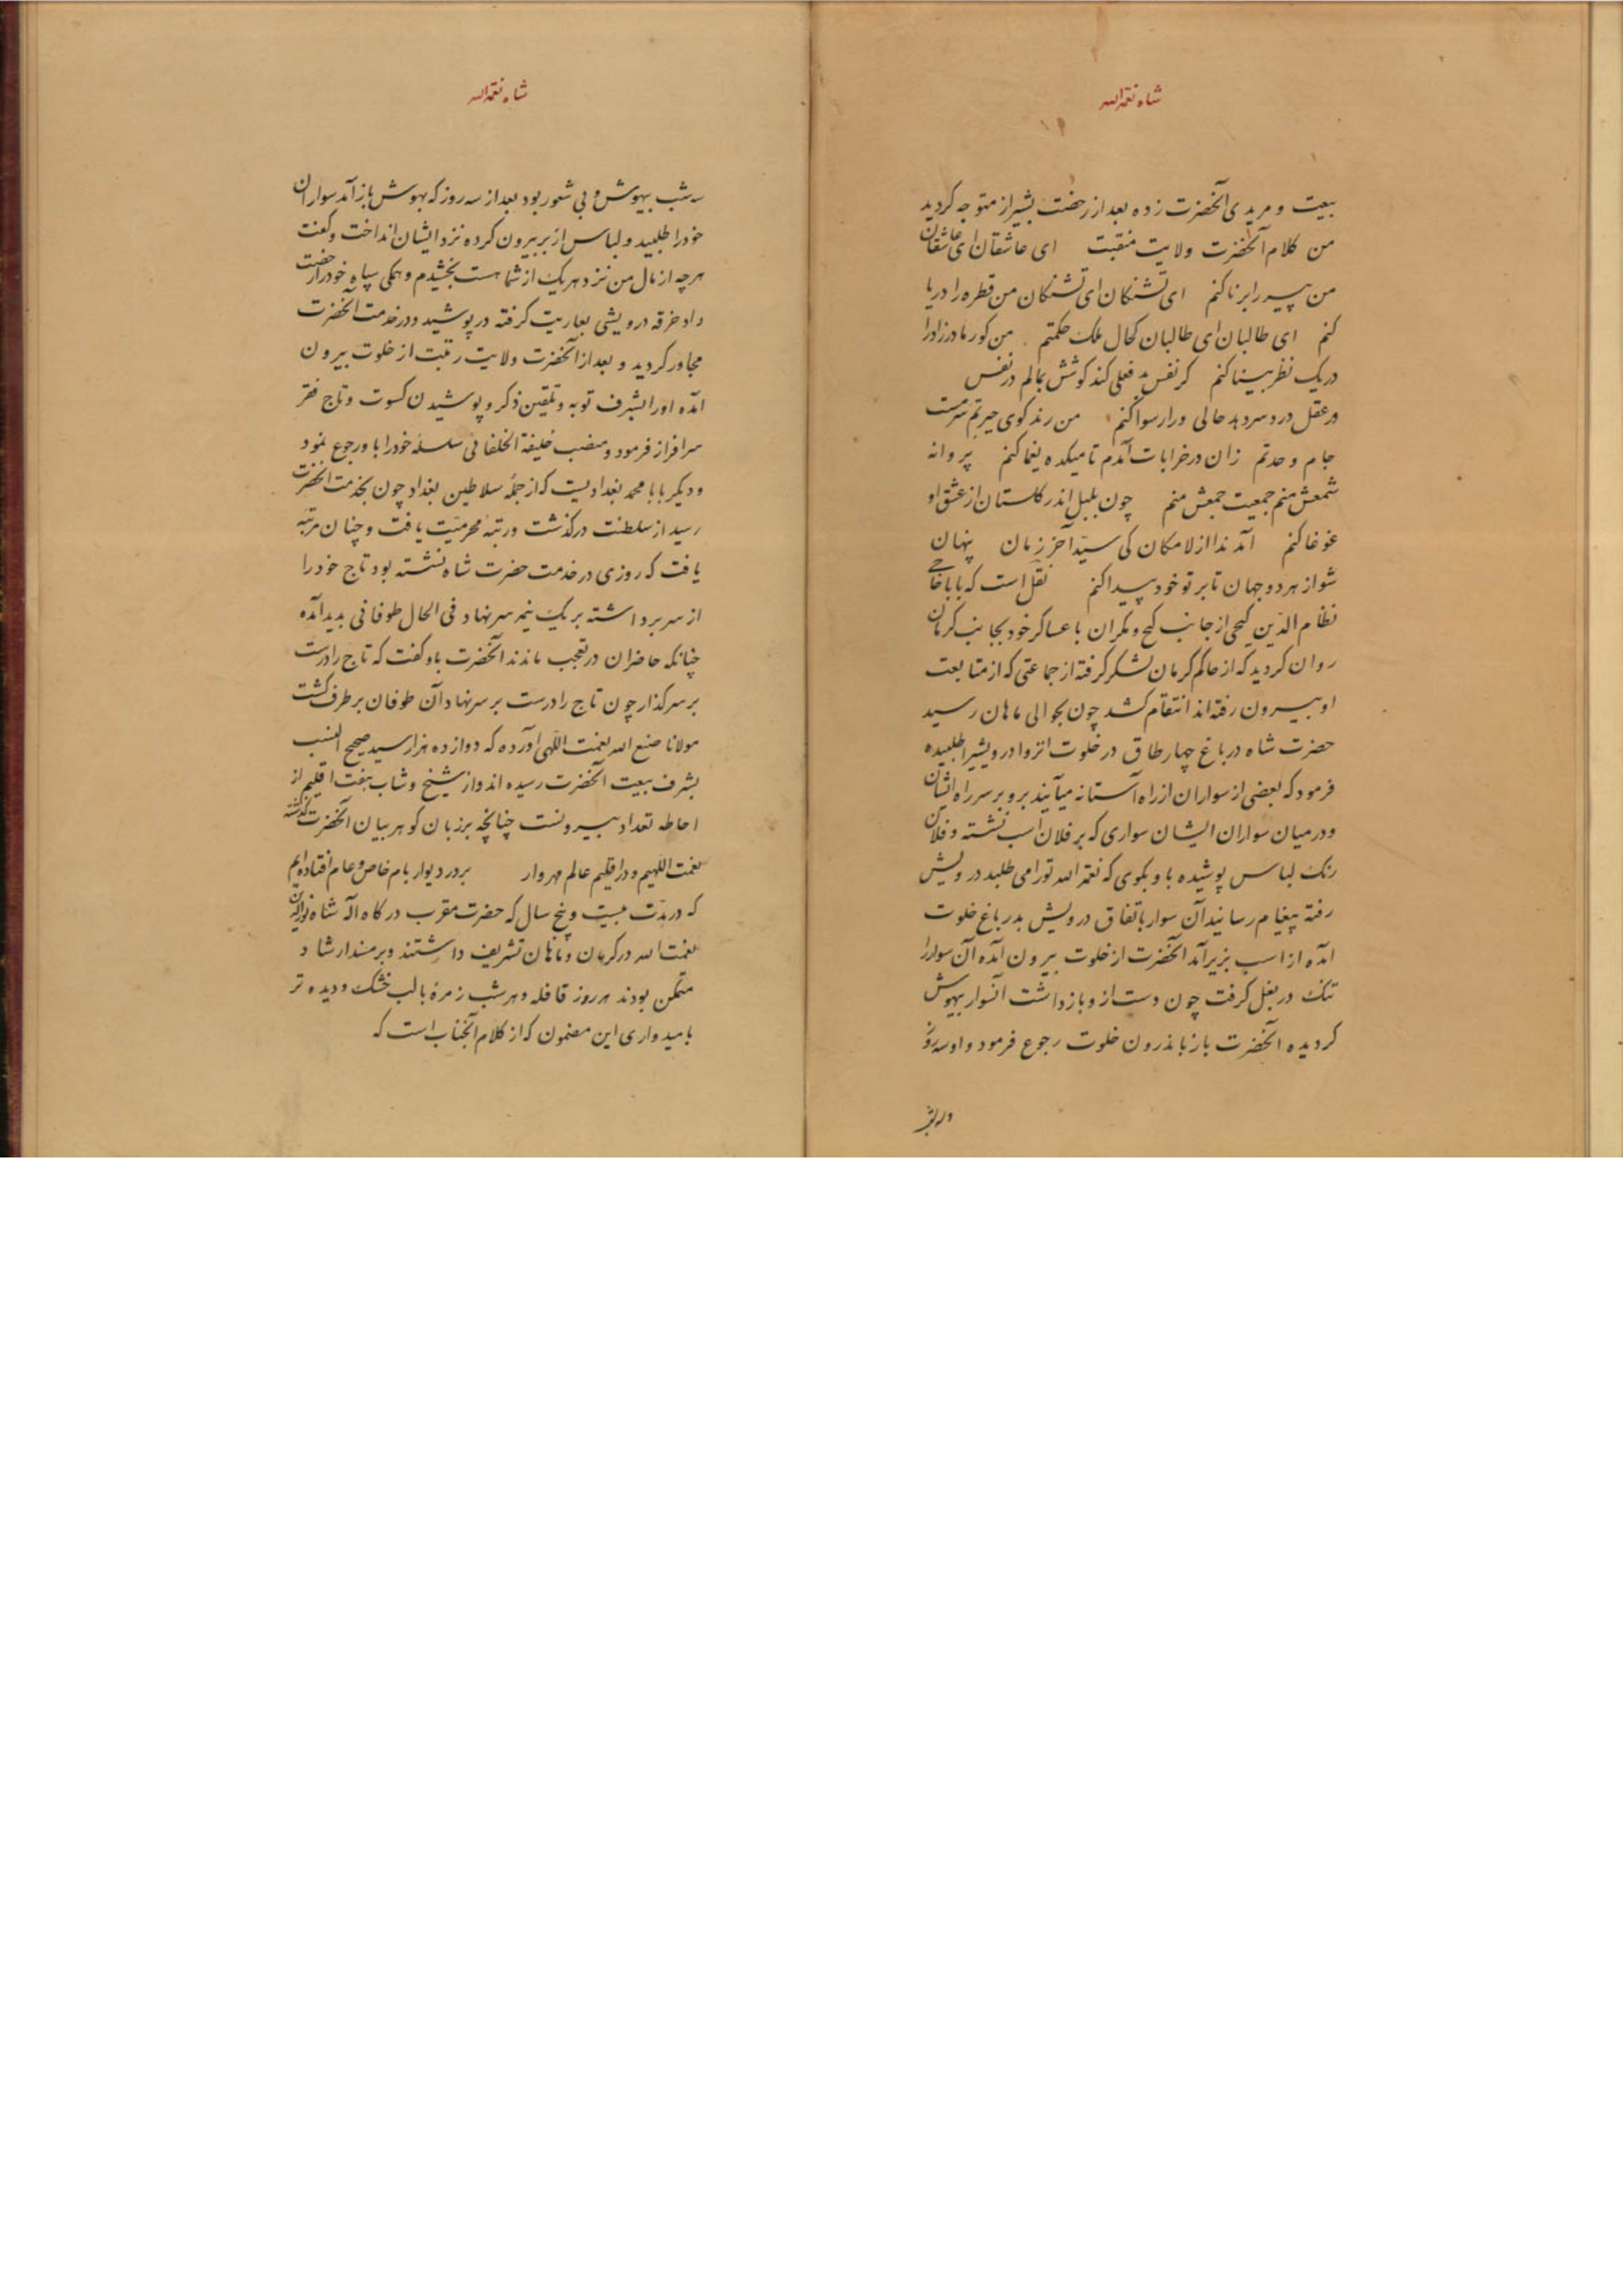 شاه نعمة الله
بیعت و مریدی آنحضرت زده بعد از رخصت بشیراز متوجه کردید
من کلام آنحضرت ولایت منقبت ای عاشقان ای عاشقان
من پیر را برنا کنم ای تشنکان ای تشنکان من قطره را دریا
کنم ای طالبان ای طالبان کحال ملک حکمتم من کور مادرزاد را
در یک نظر بینا کنم کر نفس بد فعلی کند کوشش بمالم در نفس
ور عقل درد سر دهد حالی ورا رسوا کنم من رند کوی حیرتم سرمست
جام وحدتم زان در خرابات آمدم تا میکده یغما کنم پروانه
شمعش منم جمعیت جمعش منم چون بلبل اندر کلستان از عشق او
غوغا کنم آمد ندا از لامکان کی سید آخر زمان پنهان
شو از هر دو جهان تا بر تو خود پیدا کنم نقل است که بابا حاجی
نظام الدین کیجی از جانب کیج و مکران با عساکر خود بجانب کرمان
روان کردید که از حاکم کرمان لشکر کرفته از جماعتی که از متابعت
او بیرون رفته اند انتقام کشد چون بحوالی ماهان رسید
حضرت شاه در باغ چهار طاق در خلوت انزوا درویشیرا طلبیده
فرمود که بعضی از سواران از راه آستانه میآیند برو بر سر راه ایشان
و در میان سواران ایشان سواری که بر فلان اسب نشسته و فلان
رنک لباس پوشیده باو بکوی که نعمة الله تورا می طلبد درویش
رفته پیغام رسانید آن سوار باتفاق درویش بدر باغ خلوت
آمده از اسب بزیر آمد آنحضرت از خلوت بیرون آمده آن سوار را
تنک در بغل کرفت چون دست از و باز داشت آنسوار بیهوش
کردیده آنحضرت باز باندرون خلوت رجوع فرمود و او سه روز
شاه نعمة الله
سه شب بیهوش و بی شعور بود بعد از سه روز که بهوش باز آمد سواران
خود را طلبید و لباس از بر بیرون کرده نزد ایشان انداخت و کفت
هر چه از مال من نزد هر یک از شما هست بخشیدم و همکی سپاه خود را رخصت
داد خرقه درویشی بعاریت کرفته در پوشید و در خدمت آنحضرت
مجاور کردید و بعد از آنحضرت ولایت رتبت از خلوت بیرون
آمده او را بشرف توبه و تلقین ذکر و پوشیدن کسوت و تاج فقر
سرافراز فرمود و منصب خلیفة الخلفائی سلسله خود را باو رجوع نمود
و دیکر بابا محمد بغدادیست که از جمله سلاطین بغداد چون بخدمت آنحضرت
رسید از سلطنت درکذشت و رتبه محرمیت یافت و چنان مرتبه
یافت که روزی در خدمت حضرت شاه نشسته بود تاج خود را
از سر برداشته بر یک نیمه سر نهاد فی الحال طوفانی پدید آمده
چنانکه حاضران در تعجب ماندند آنحضرت باو کفت که تاج را درست
بر سر کذار چون تاج را درست بر سر نهاد آن طوفان بر طرف کشت
مولانا صنع الله نعمت اللهی آورده که دوازده هزار سید صحیح النسب
بشرف بیعت آنحضرت رسیده اند و از شیخ و شاب هفت اقلیم از
احاطه تعداد بیرونست چنانچه بر زبان کوهر بیان آنحضرت کذشته
نعمت اللهیم و در اقلیم عالم مهروار بر در دیوار بام خاص و عام افتاده ایم
که در مدت بیست و پنج سال که حضرت مقرب درکاه اله شاه نورالدین
نعمت الله در کرمان و ماهان تشریف داشتند و بر مسند ارشاد
متمکن بودند هر روز قافله و هر شب زمرهٔ با لب خشک و دیده تر
بامیدواری این مضمون که از کلام آنجناب است که